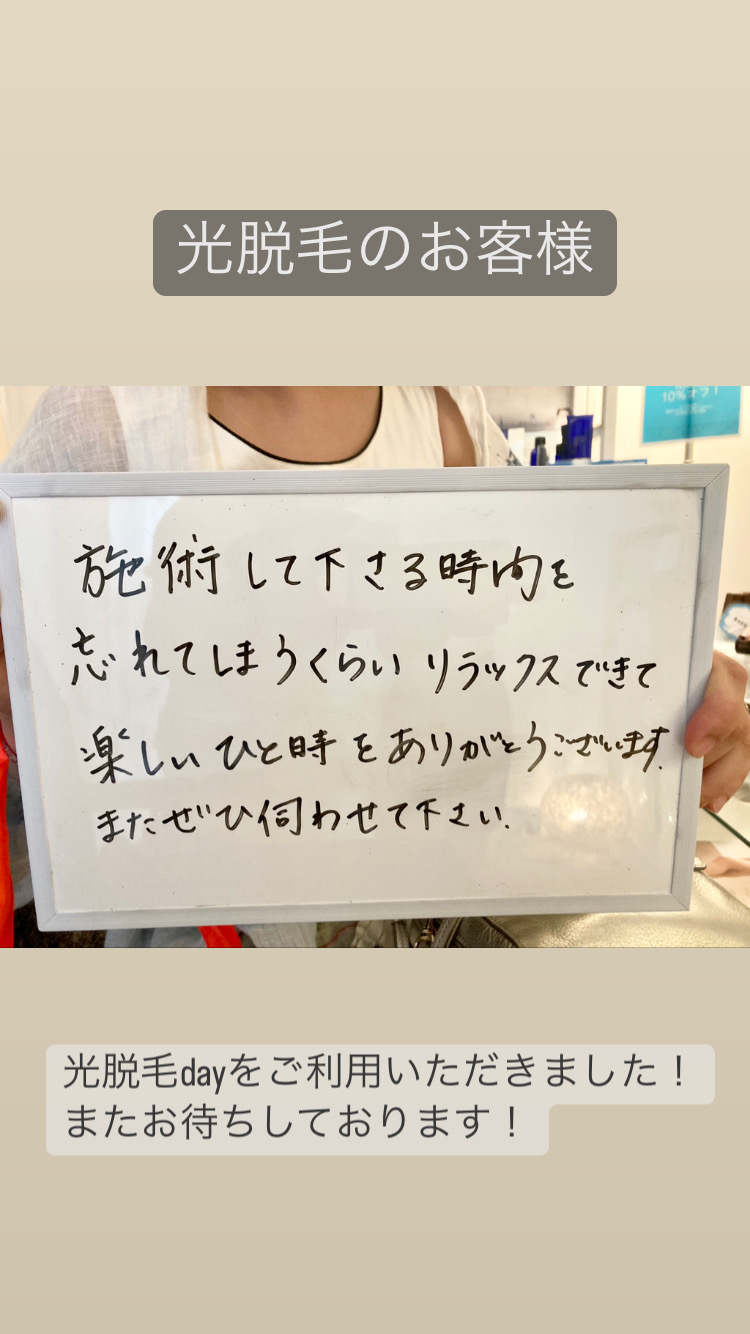 光脱毛のお客様
10%オフ！
施術して下さる時間を
忘れてしまうくらいリラックスできて
楽しいひと時をありがとうございます.
またぜひ伺わせて下さい.
光脱毛dayをご利用いただきました！
またお待ちしております！